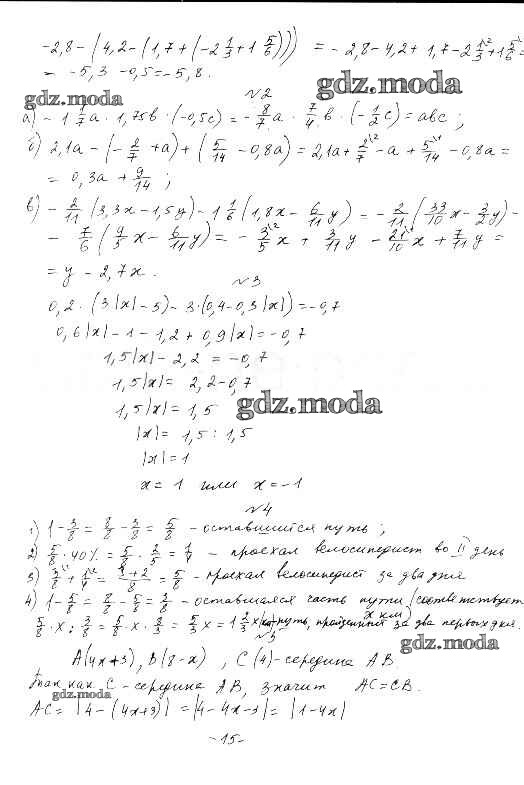 -2,8-(4,2-(1,7+(-2 1/3+1 5/6))) = -2,8-4,2+1,7-2 1/3+1 5/6=
= -5,3-0,5=-5,8.
gdz.moda
№2
gdz.moda
а) -1 1/7a · 1,75b · (-0,5c) = -8/7 a · 7/4 b · (-1/2 c) = abc;
б) 2,1a-(-2/7+a)+(5/14-0,8a)=2,1a+2/7-a+5/14-0,8a=
= 0,3a+9/14;
в) -2/11(3,3x-1,5y)-1 1/6(1,8x-6/11y)=-2/11(33/10x-3/2y)-
-7/6(9/5x-6/11y)=-3/5x+3/11y-21/10x+7/11y=
=y-2,7x.
№3
0,2·(3|x|-5)-3·(0,4-0,3|x|)=-0,7
0,6|x|-1-1,2+0,9|x|=-0,7
1,5|x|-2,2=-0,7
1,5|x|= 2,2-0,7
1,5|x|= 1,5
gdz.moda
|x|= 1,5:1,5
|x|=1
x=1 или x=-1
№4
1) 1-3/8=8/8-3/8=5/8 - оставшийся путь;
2) 5/8·40%=5/8·2/5=1/4 - проехал велосипедист во II день
3) 3/8+1/4=3+2/8=5/8 - проехал велосипедист за два дня
4) 1-5/8=8/8-5/8=3/8 - оставшаяся часть пути (соответствует x км)
5/8·x:3/8=5/8x·8/3=5/3x=1 2/3x(км) путь, пройденный за два первых дня.
№5
gdz.moda
A(4x+3), B(8-x), C(4)-середина AB.
Так как C-середина AB, значит AC=CB.
gdz.moda
AC=|4-(4x+3)|=|4-4x-3|=|1-4x|
-15-